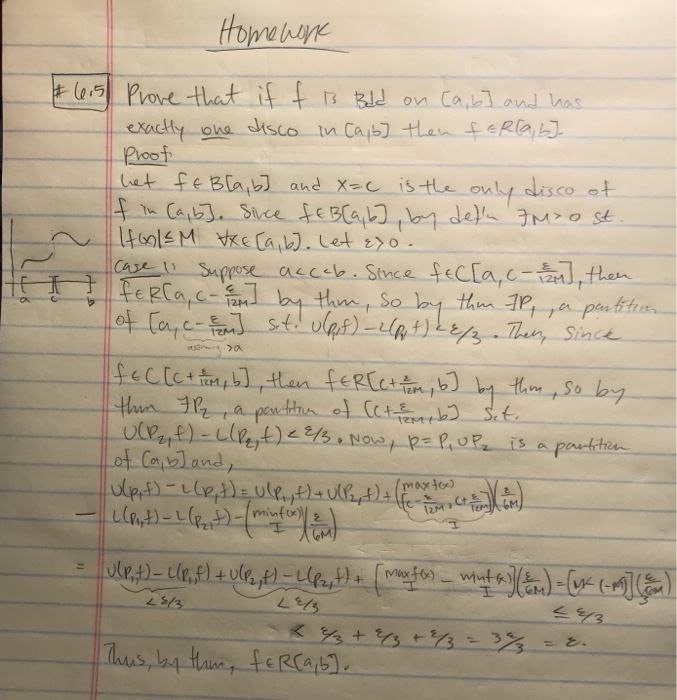 Homework
#6.5 Prove that if f is Bdd on [a,b] and has
exactly one disco in [a,b] then f∈R[a,b].
Proof
Let f∈B[a,b] and x=c is the only disco of
f in [a,b]. Since f∈B[a,b], by def'n ∃M>0 st.
|f(x)|≤M ∀x∈[a,b]. Let ε>0.
Case 1: Suppose a<c<b. Since f∈C[a,c-ε/12M], then
f∈R[a,c-ε/12M] by thm, so by thm ∃P₁, a partition
of [a,c-ε/12M] s.t. U(P₁,f)-L(P₁,f)<ε/3. Then, since
assuming >a
a c b
f∈C[c+ε/12M,b], then f∈R[c+ε/12M,b] by thm, so by
thm ∃P₂, a partition of [c+ε/12M,b] s.t.
U(P₂,f)-L(P₂,f)<ε/3. Now, P=P₁∪P₂ is a partition
of [a,b] and,
U(P,f)-L(P,f)=U(P₁,f)+U(P₂,f)+(max f(x) [c-ε/12M,c+ε/12M])(ε/6M)
I
-L(P₁,f)-L(P₂,f)-(min f(x) I)(ε/6M)
=U(P₁,f)-L(P₁,f)+U(P₂,f)-L(P₂,f)+[max f(x) I - min f(x) I](ε/6M)=[M-(-M)](ε/6M)
<ε/3 <ε/3 ≤ε/3
<ε/3+ε/3+ε/3=3ε/3=ε.
Thus, by thm, f∈R[a,b].